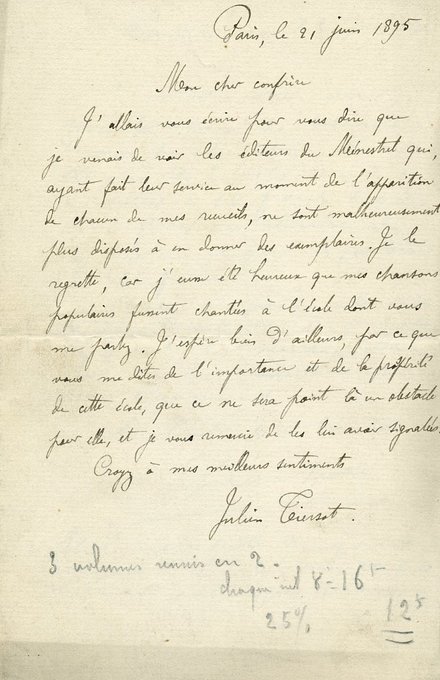 Paris, le 21 juin 1895
Mon cher confrère
J'allais vous écrire pour vous dire que
je venais de voir les éditeurs du Ménestrel qui,
ayant fait leur service au moment de l'apparition
de chacun de mes recueils, ne sont malheureusement
plus disposés à en donner des exemplaires. Je le
regrette, car j'eusse été heureux que mes chansons
populaires fussent chantées à l'école dont vous
me parlez. J'espère bien d'ailleurs, par ce que
vous me dites de l'importance et de la prospérité
de cette école, que ce ne sera point là un obstacle
pour elle, et je vous remercie de les lui avoir signalées.
Croyez à mes meilleurs sentiments
Julien Tiersot.
3 volumes réunis en 2.
chaque net 8 = 16 f
25 % 12 f